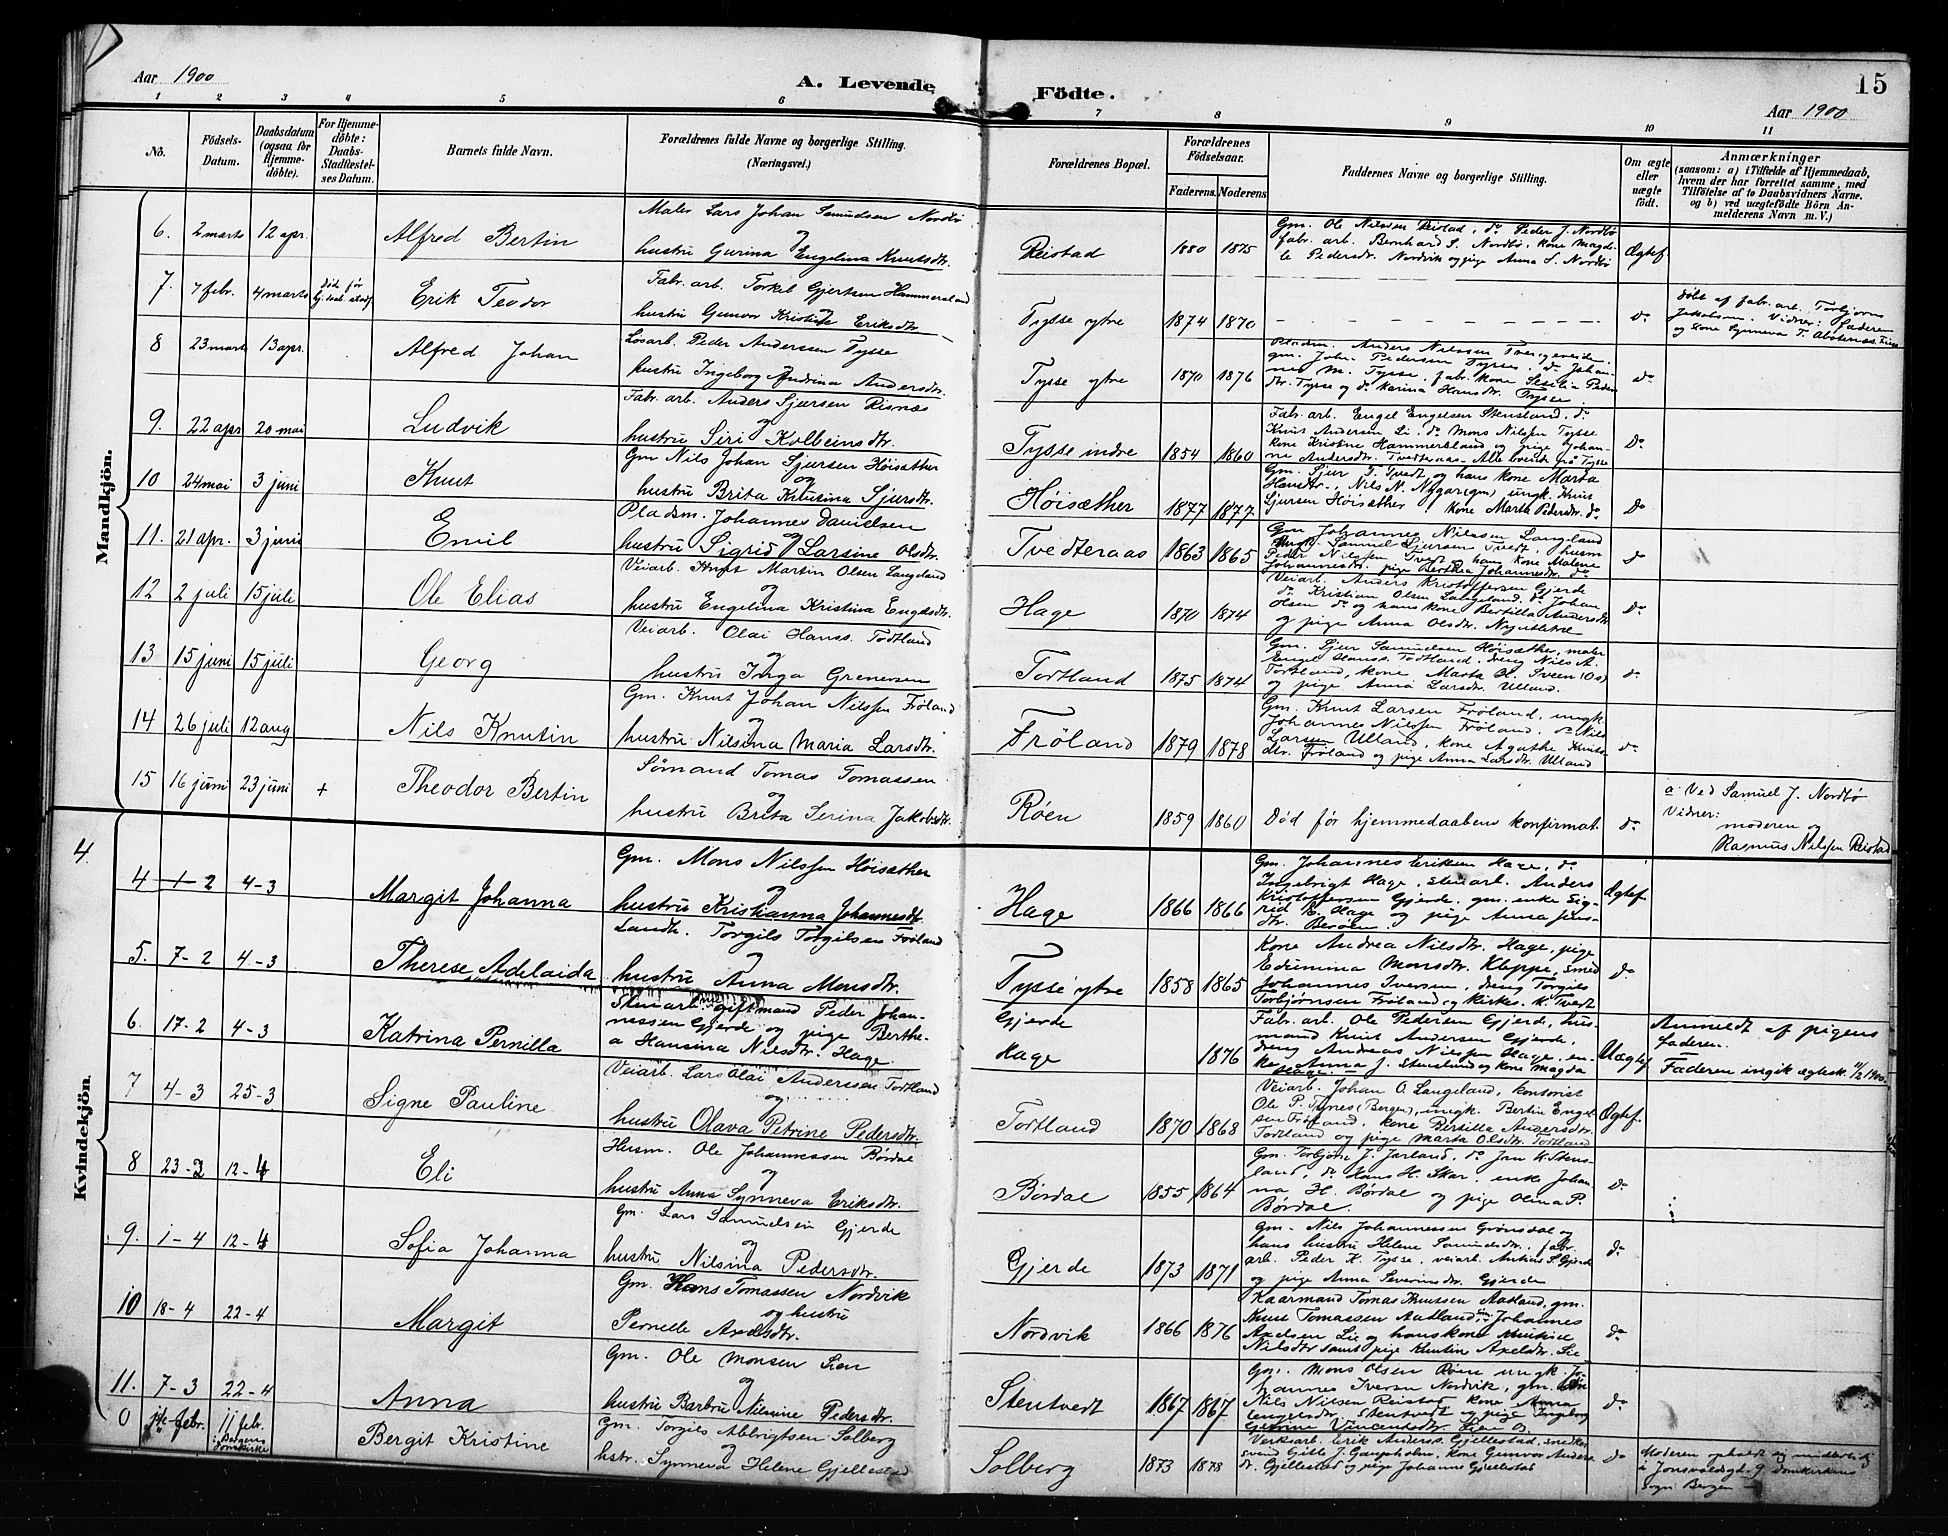 Aar 1900
A. Levende Födte.
15
Aar 1900
1 2 3 4 5 6 7 8 9 10 11
No.
Födsels-Datum.
Daabsdatum (ogsaa for Hjemmedöbte).
For Hjemmedöbte: Daabs-Stadfæstelses Datum.
Barnets fulde Navn.
Forældrenes fulde Navne og borgerlige Stilling. (Næringsvei.)
Forældrenes Bopæl.
Forældrenes Födselsaar.
Faderens. Moderens
Faddernes Navne og borgerlige Stilling.
Om ægte eller uægte födt.
Anmærkninger
(saasom: a) i Tilfælde af Hjemmedaab, hvem der har forrettet samme, med Tilföielse af to Daabsvidners Navne, og b) ved uægtefödte Börn Anmelderens Navn m. V.)
Mandkjön.
6. 2 marts 12 apr. Alfred Bertin
Maler Lars Johan Samuelsen Nordbø
og
hustru Gurina Engelina Knutsdtr.
Reistad 1880 1875
Gm. Ole Nilssen Reistad, do Peder J. Nordbø
fabr. arb. Bernhard S. Nordbø, kone Magde-
le Pedersdr. Nordvik og pige Anna S. Nordbø
Ægtef.
7. 7 febr. 4 marts død før Erik Teodor
Fabr. arb. Torkel Gjertsen Hammersland
og
hustru Gunvor Kristine Eriksdtr.
Tysse ytre 1874 1870 do
døbt af fabr. arb. Torbjørn
Jakobsen. Vidner: faderen
og kone Synneva T.
8 23 marts 13 apr. Alfred Johan
Løsarb. Peder Anderssen Tysse
hustru Ingeborg Andrina Andersdtr.
Tysse ytre 1870 1876
Pladsm. Anders Nilssen
gm. Johs. Pedersen Tysse, do Johan-
nes M. Tysse, fabr. kone Sesilia Peders
dr. Tysse og do Karina Hansdtr. Tysse.
do
9. 22 apr 20 mai Ludvik
Fabr. arb. Anders Sjursen Risnæs
og
hustru Siri Kolbeinsdtr.
Tysse indre 1854 1860
Fabr. arb. Engel Engelsen Stensland, do
Knut Andersen Li, do Mons Nilssen Tysse
kone Kristine Hammersland og pige Johan-
ne Andersdtr. Tvedteraas. Alle boende på Tysse
Do
10 24 mai 3 juni Knut
Gm Nils Johan Sjursen Høisæther
og
hustru Brita Knusina Sjursdtr.
Høisæther 1877 1877
Gm. Sjur T. Tvedt og hans kone Marta
Hansdtr., Nils N. Nygar (gm) ungk. Knut
Sjursen Høisæther kone Marta Pedersdtr. do
Do
11. 21 apr. 3 juni Emil
Pladsm. Johannes Danielsen
og
hustru Sigrid Larsine Olsdtr.
Tvedteraas 1863 1865
Gm Johannes Nilssen Langeland
ungk. Samuel Sjursen Tvedt, husm
Peder Nilssen Tvedt, hans kone Malene
Johannesdtr. pige Berthea Johannesdtr. do
do
12 2 juli 15 juli Ole Elias
Veiarb. Knut Martin Olsen Langeland
og
hustru Engelina Kristina Engelsdtr.
Hage 1870 1874
Veiarb. Anders Kristoffersen Gjerde
do Kristian Olsen Langeland, do Johan
Olsen do og hans kone Bertilla Andersdtr
og pige Anna Olsdtr.
Do
13 15 juni 15 juli Georg
Veiarb. Olai Hanss. Todtland
og
hustru Inga Grenersen
Tortland 1875 1874
Gm. Sjur Samuelsen Høisæther, maler
Engel Hanss. Todtland, dreng Nils A.
Tortland, kone Marta H. Sveen (Os)
og pige Anna Larsdtr. Ulland.
do
14 26 juli 12 aug Nils Knutin
Gm. Knut Johan Nilssen Frøland
og
hustru Nilsina Maria Larsdtr.
Frøland 1879 1878
Gm. Knut Larsen Frøland, ungk
Johannes Nilssen Frøland, do Nils
Larsen Ulland, kone Agathe Knuts-
dtr. Frøland og pige Anna Larsdtr. Ulland
do
15 16 juni 23 juni + Theodor Bertin
Sømand Tomas Tomassen
og
hustru Brita Serina Jakobsdtr.
Røen 1859 1860 Død før hjemmedaabens konfirmat. do
a Ved Samuel J. Nordbø
Vidner:
moderen og
Rasmus Nilssen Reistad
4.
Kvindekjön.
4 1-2 4-3 Margit Johanna
Gm. Mons Nilssen Høisæther
og
hustru Kristianna Johannesdtr.
Hage 1866 1866
Gm. Johannes Eriksen Hage, do
Ingebrigt Hage, stenarb. Anders
Kristoffersen Gjerde, gm. enke Sig-
rid R. Hage og pige Anna Jens-
dtr.
Ægtef
5. 7-2 4-3 Therese Adelaida
Landh. Torgils Torgilsen Frøland
hustru Anna Monsdtr.
Tysse ytre 1858 1865
Kone Andrea Nilsdtr. Hage, pige
Edinmina Monsdtr. Kleppe, smed
Johannes Iversen, dreng Torgils
Torbjørnsen Frøland og kirkes. K. Tvedt
do
6. 17-2 4-3 Katrina Pernilla
Stenarb. giftmand Peder Johan-
nessen Gjerde og pige Berthe-
a Hansina Nilsdtr. Hage
Gjerde
Hage 1876
Fabr. arb. Ole Pedersen Gjerde, hus-
mand Knut Andersen Gjerde,
dreng Andreas Nilssen Hage, en-
ke Anna J. Stensland og kone Magda
Hage
Uægtef
Anmeldt af pigens
faderen.
Faderen ingik ægtesk. 11/2 1900.
7 4-3 25-3 Signe Pauline
Veiarb. Lars Olai Anderssen Tortland
og
hustru Olava Petrine Pedersdtr.
Tortland 1870 1868
Veiarb. Johan O. Langeland, kontorist
Ole P. Tynes (Bergen), ungk. Bertin Engel
sen Frøland, kone Bertilla Andersdtr.
Todtland og pige Marta Olsdtr. Tortland
Ægtef
8 23-3 12-4 Eli
Husm. Ole Johannessen Børdal
og
hustru Anna Synneva Eriksdtr.
Børdal 1855 1864
Gm. Torbjørn J. Jarland, do Jan K. Stens-
land, do Hans H. Skar, enke Johan-
na H. Børdal og pige Olina P.
Børdal.
do
9. 1-4 12-4 Sofia Johanna
Gm. Lars Samuelsen Gjerde
og
hustru Nilsina Pedersdtr.
Gjerde 1873 1871
Gm. Nils Johannessen Grønsdal og
hans hustru Helene Samuelsdtr., fabr.
arb. Peder K. Tysse, veiarb. Antins S. Gjerde
og pige Anna Severinsdtr. Gjerde
do
10 18-4 22-4 Margit
Gm. Hans Tomassen Nordvik
og hustru
Pernille Axelsdtr.
Nordvik 1866 1876
Kaarmand Tomas Knutsen Aadland, gm.
Knut Tomassen Aadland, gm. Johannes
Axelsen Lie og hans kone Knutine
Nilsdtr samt pige Knutin Axelsdtr. Lie
do
11. 7-3 22-4 Anna
Gm. Ole Monsen Lien
og
hustru Barbru Nilsine Pedersdtr.
Stentvedt 1867 1867
Gm. Mons Olsen Røene ungk. Jo-
hannes Iversen Nordvik, gm.
Nils Nilsen Reistad, kone Anna
Engelsdtr. Stentvedt og pige Ingeborg
Do
0 febr. 11 febr. i Bergens Domkirke Bergit Kristine
Gm. Torgils Abbrigtsen Solberg
og
hstr. Synneva Helene Gjellestad
Solberg 1873 1878
Verksarb. Erik Anderss. Gjellestad, snedker
svend Gitle J. Gaupholm, kone Gunvor Anders
dr. Gjellestad og pige Johanne Gjellestad
do
Moderen opholdt sig midlertidig
i Jonsvoldsgd. 9 domkirkens
sogn Bergen